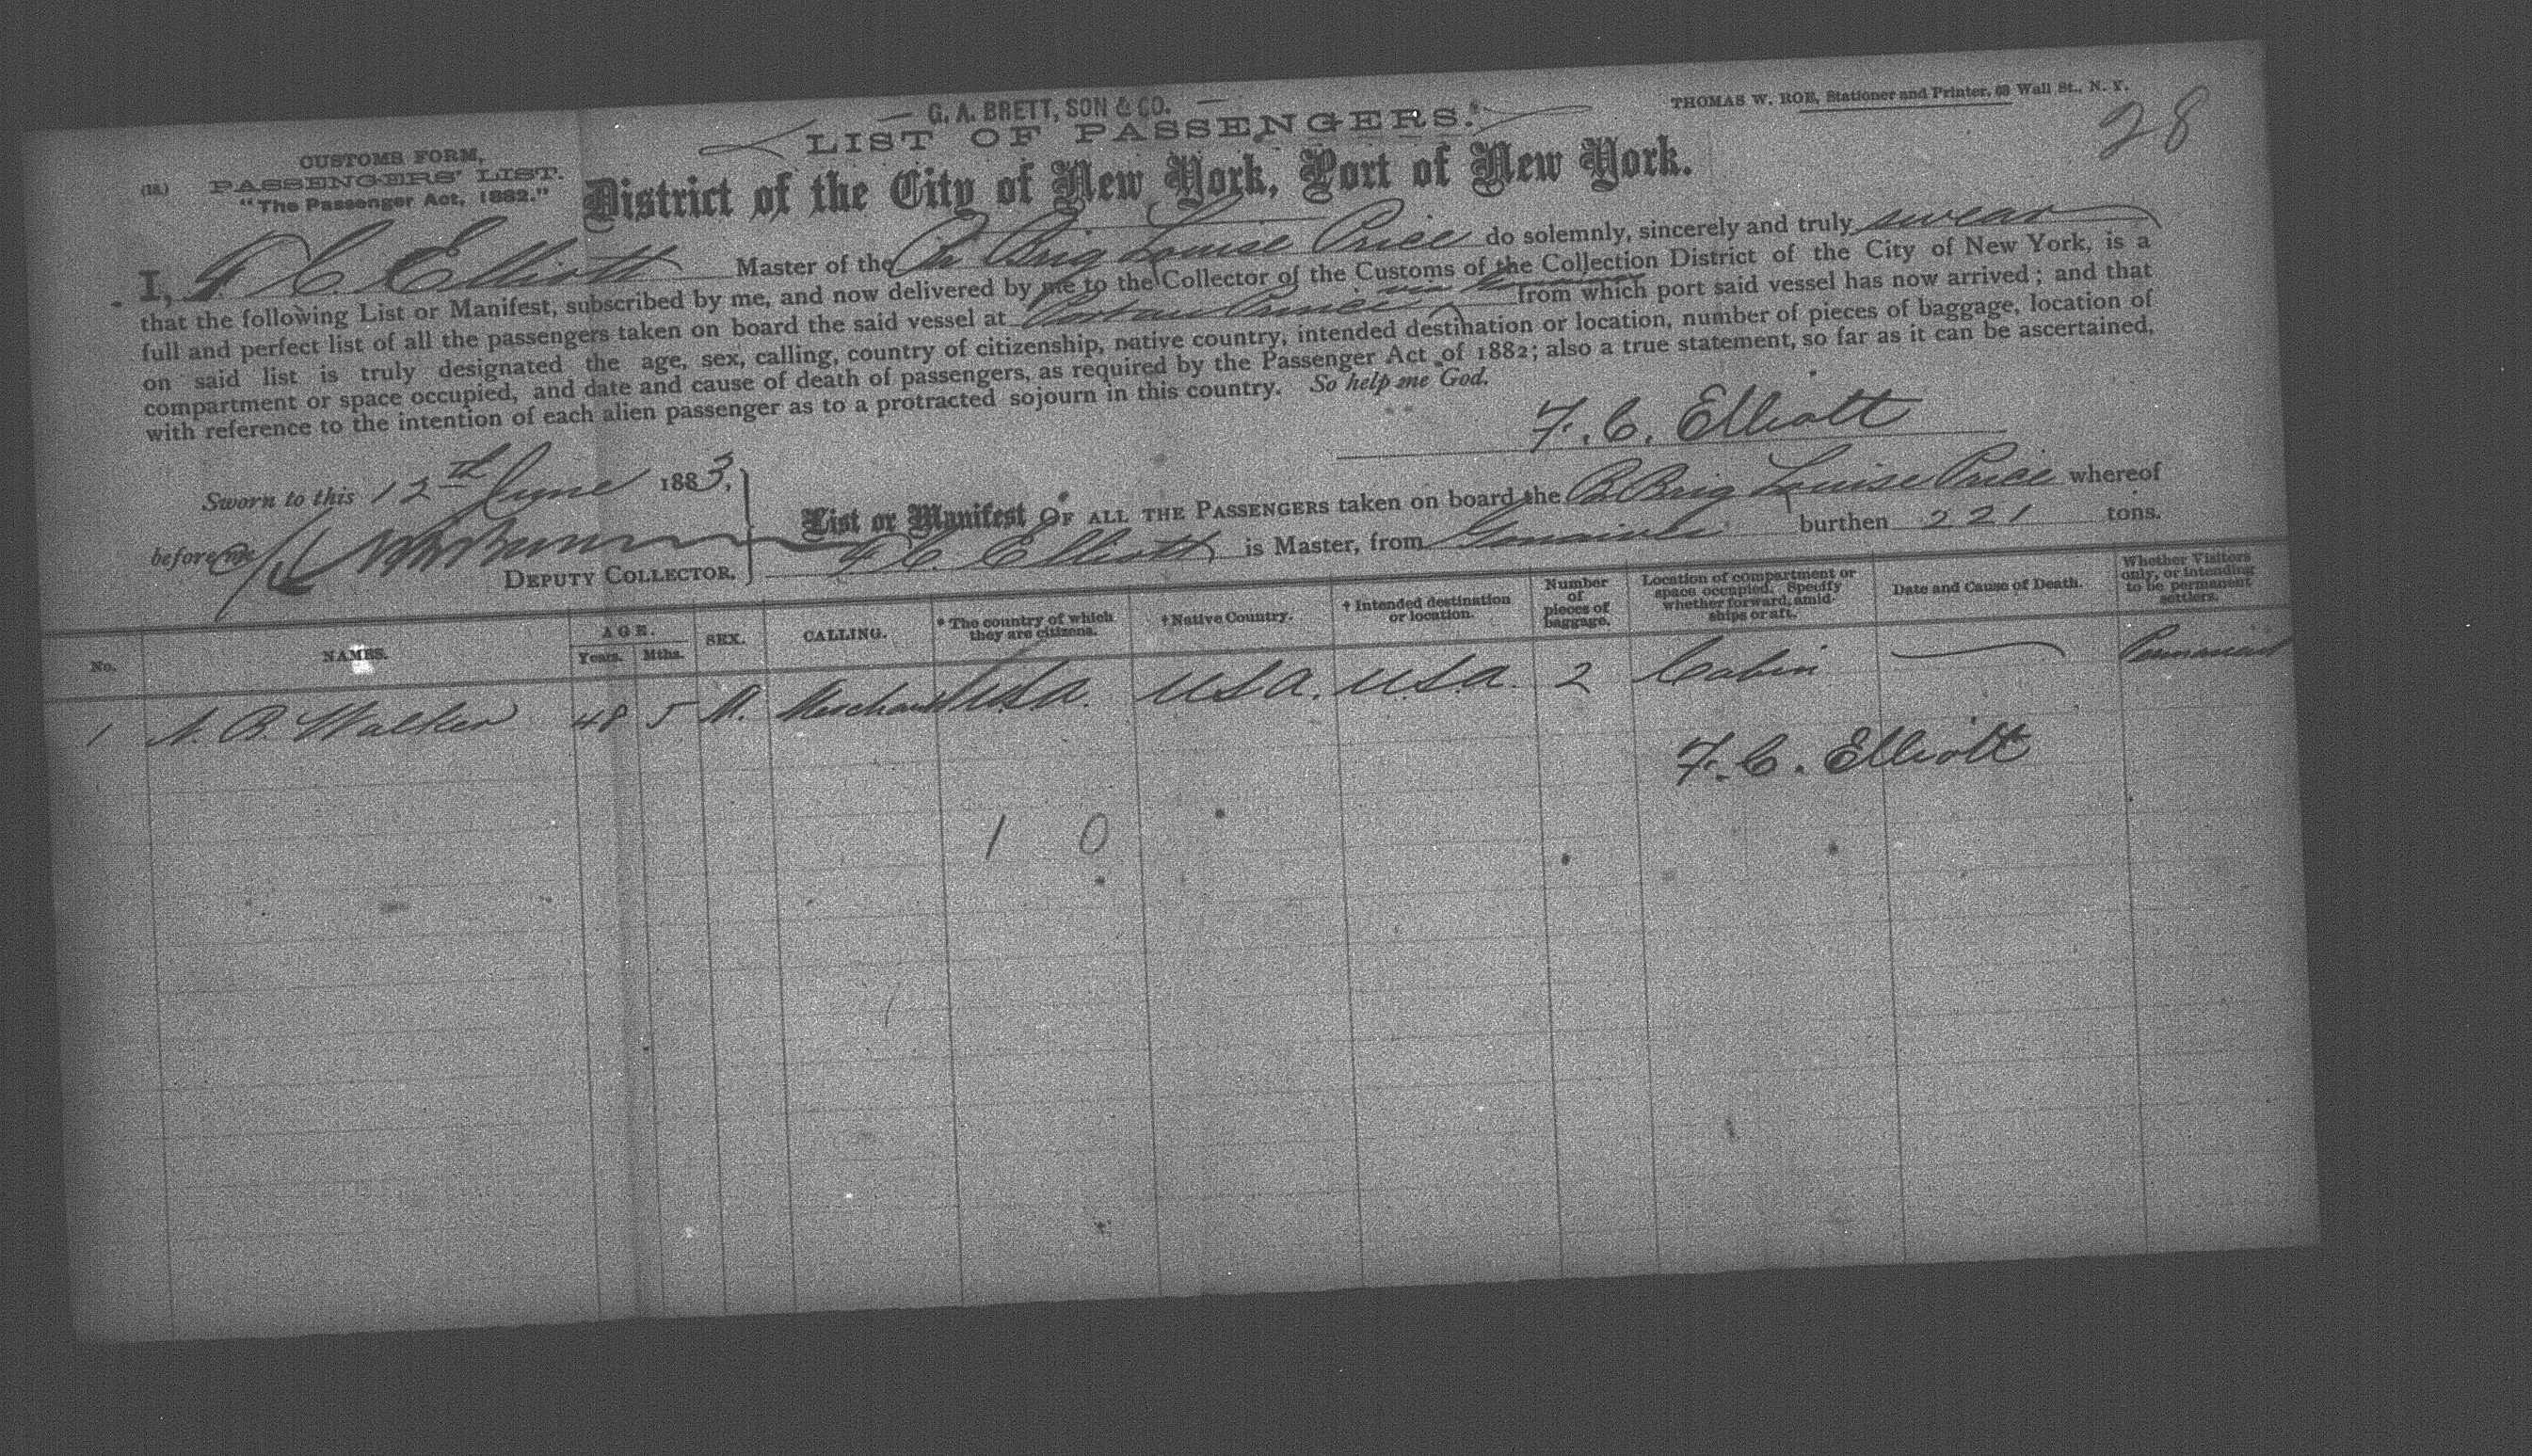 G. A. BRETT, SON & CO.
THOMAS W. ROE, Stationer and Printer, 69 Wall St., N. Y.
28
LIST OF PASSENGERS.
(18.)
CUSTOMS FORM,
PASSENGERS' LIST.
"The Passenger Act, 1882."
District of the City of New York, Port of New York.
I, F. C. Elliott Master of the Br Brig Louise Price do solemnly, sincerely and truly swear
that the following List or Manifest, subscribed by me, and now delivered by me to the Collector of the Customs of the Collection District of the City of New York, is a
full and perfect list of all the passengers taken on board the said vessel at Port au Prince via from which port said vessel has now arrived; and that
on said list is truly designated the age, sex, calling, country of citizenship, native country, intended destination or location, number of pieces of baggage, location of
compartment or space occupied, and date and cause of death of passengers, as required by the Passenger Act of 1882; also a true statement, so far as it can be ascertained,
with reference to the intention of each alien passenger as to a protracted sojourn in this country. So help me God.
F. C. Elliott
Sworn to this 12th June 1883,
before me
DEPUTY COLLECTOR.
List or Manifest OF ALL THE PASSENGERS taken on board the B Brig Louise Price whereof
F C. Elliott is Master, from burthen 221 tons.
No. NAMES. AGE. Years. Mths. SEX. CALLING. * The country of which they are citizens. † Native Country. † Intended destination or location. Number of pieces of baggage. Location of compartment or space occupied. Specify whether forward, amidships or aft. Date and Cause of Death. Whether Visitors only, or intending to be permanent settlers.
1 N. B. Walker 48 5 M. Merchant USA. USA. U.S.A. 2 Cabin Permanent
F. C. Elliott
1 0